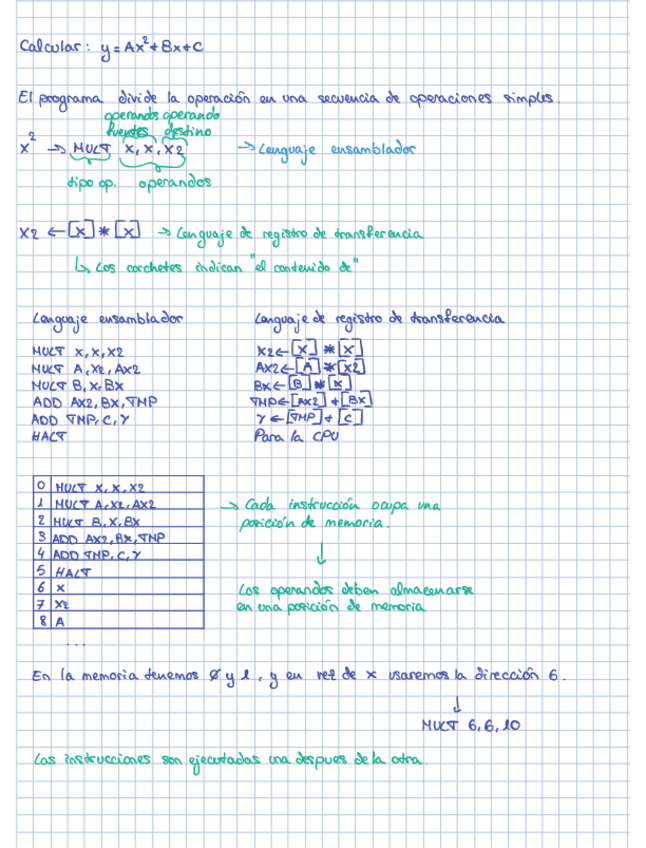 Calcular: y = Ax² + Bx + C
El programa divide la operación en una secuencia de operaciones simples.
operandos operando
fuentes destino
x² → MULT x, x, x2 → Lenguaje ensamblador
tipo op. operandos
X2 ← [x] * [x] → Lenguaje de registro de transferencia
↳ Los corchetes indican "el contenido de"
Lenguaje ensamblador Lenguaje de registro de transferencia
MULT X, X, X2 X2 ← [X] * [X]
MULT A, X2, AX2 AX2 ← [A] * [X2]
MULT B, X, BX BX ← [B] * [X]
ADD AX2, BX, TMP TMP ← [AX2] + [BX]
ADD TMP, C, Y Y ← [TMP] + [C]
HALT Para la CPU
0 MULT X, X, X2
1 MULT A, X2, AX2 → Cada instrucción ocupa una
2 MULT B, X, BX posición de memoria.
3 ADD AX2, BX, TMP
4 ADD TMP, C, Y ↓
5 HALT
6 X Los operandos deben almacenarse
7 X2 en una posición de memoria
8 A
...
En la memoria tenemos 0 y 1, y en vez de x usaremos la dirección 6.
↓
MULT 6, 6, 10
Las instrucciones son ejecutadas una despues de la otra.